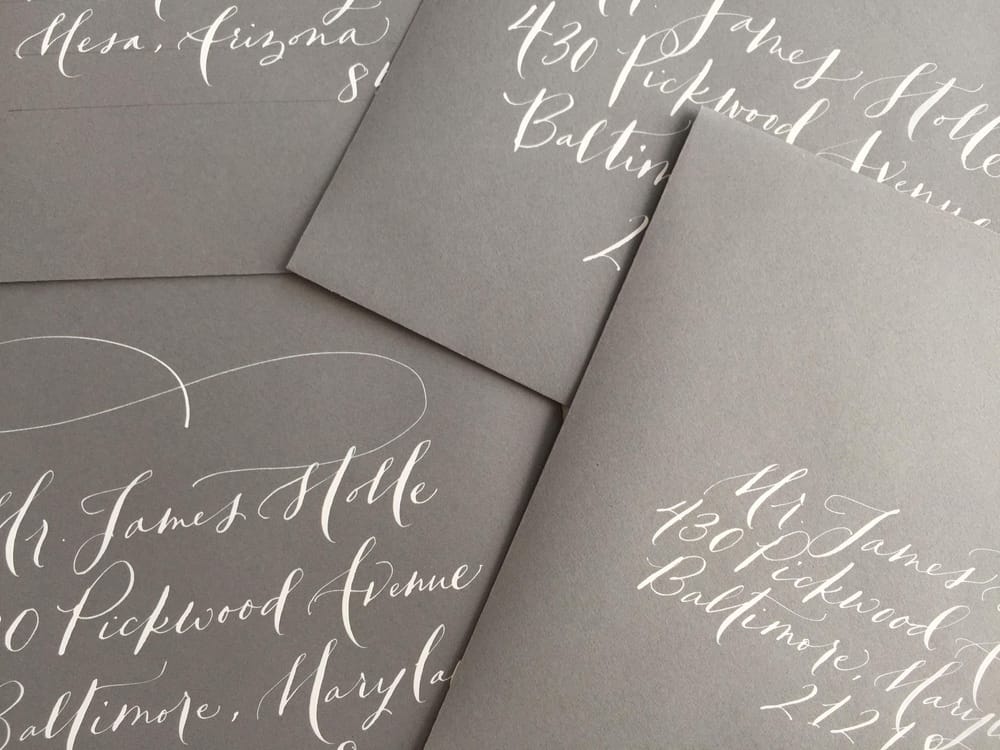 Mesa, Arizona
8
James Stolle
430 Pickwood Avenue
Baltim
2
Mr. James Stolle
0 Pickwood Avenue
Baltimore, Maryla
Mr. James
430 Pickwood
Baltimore, Mary
212